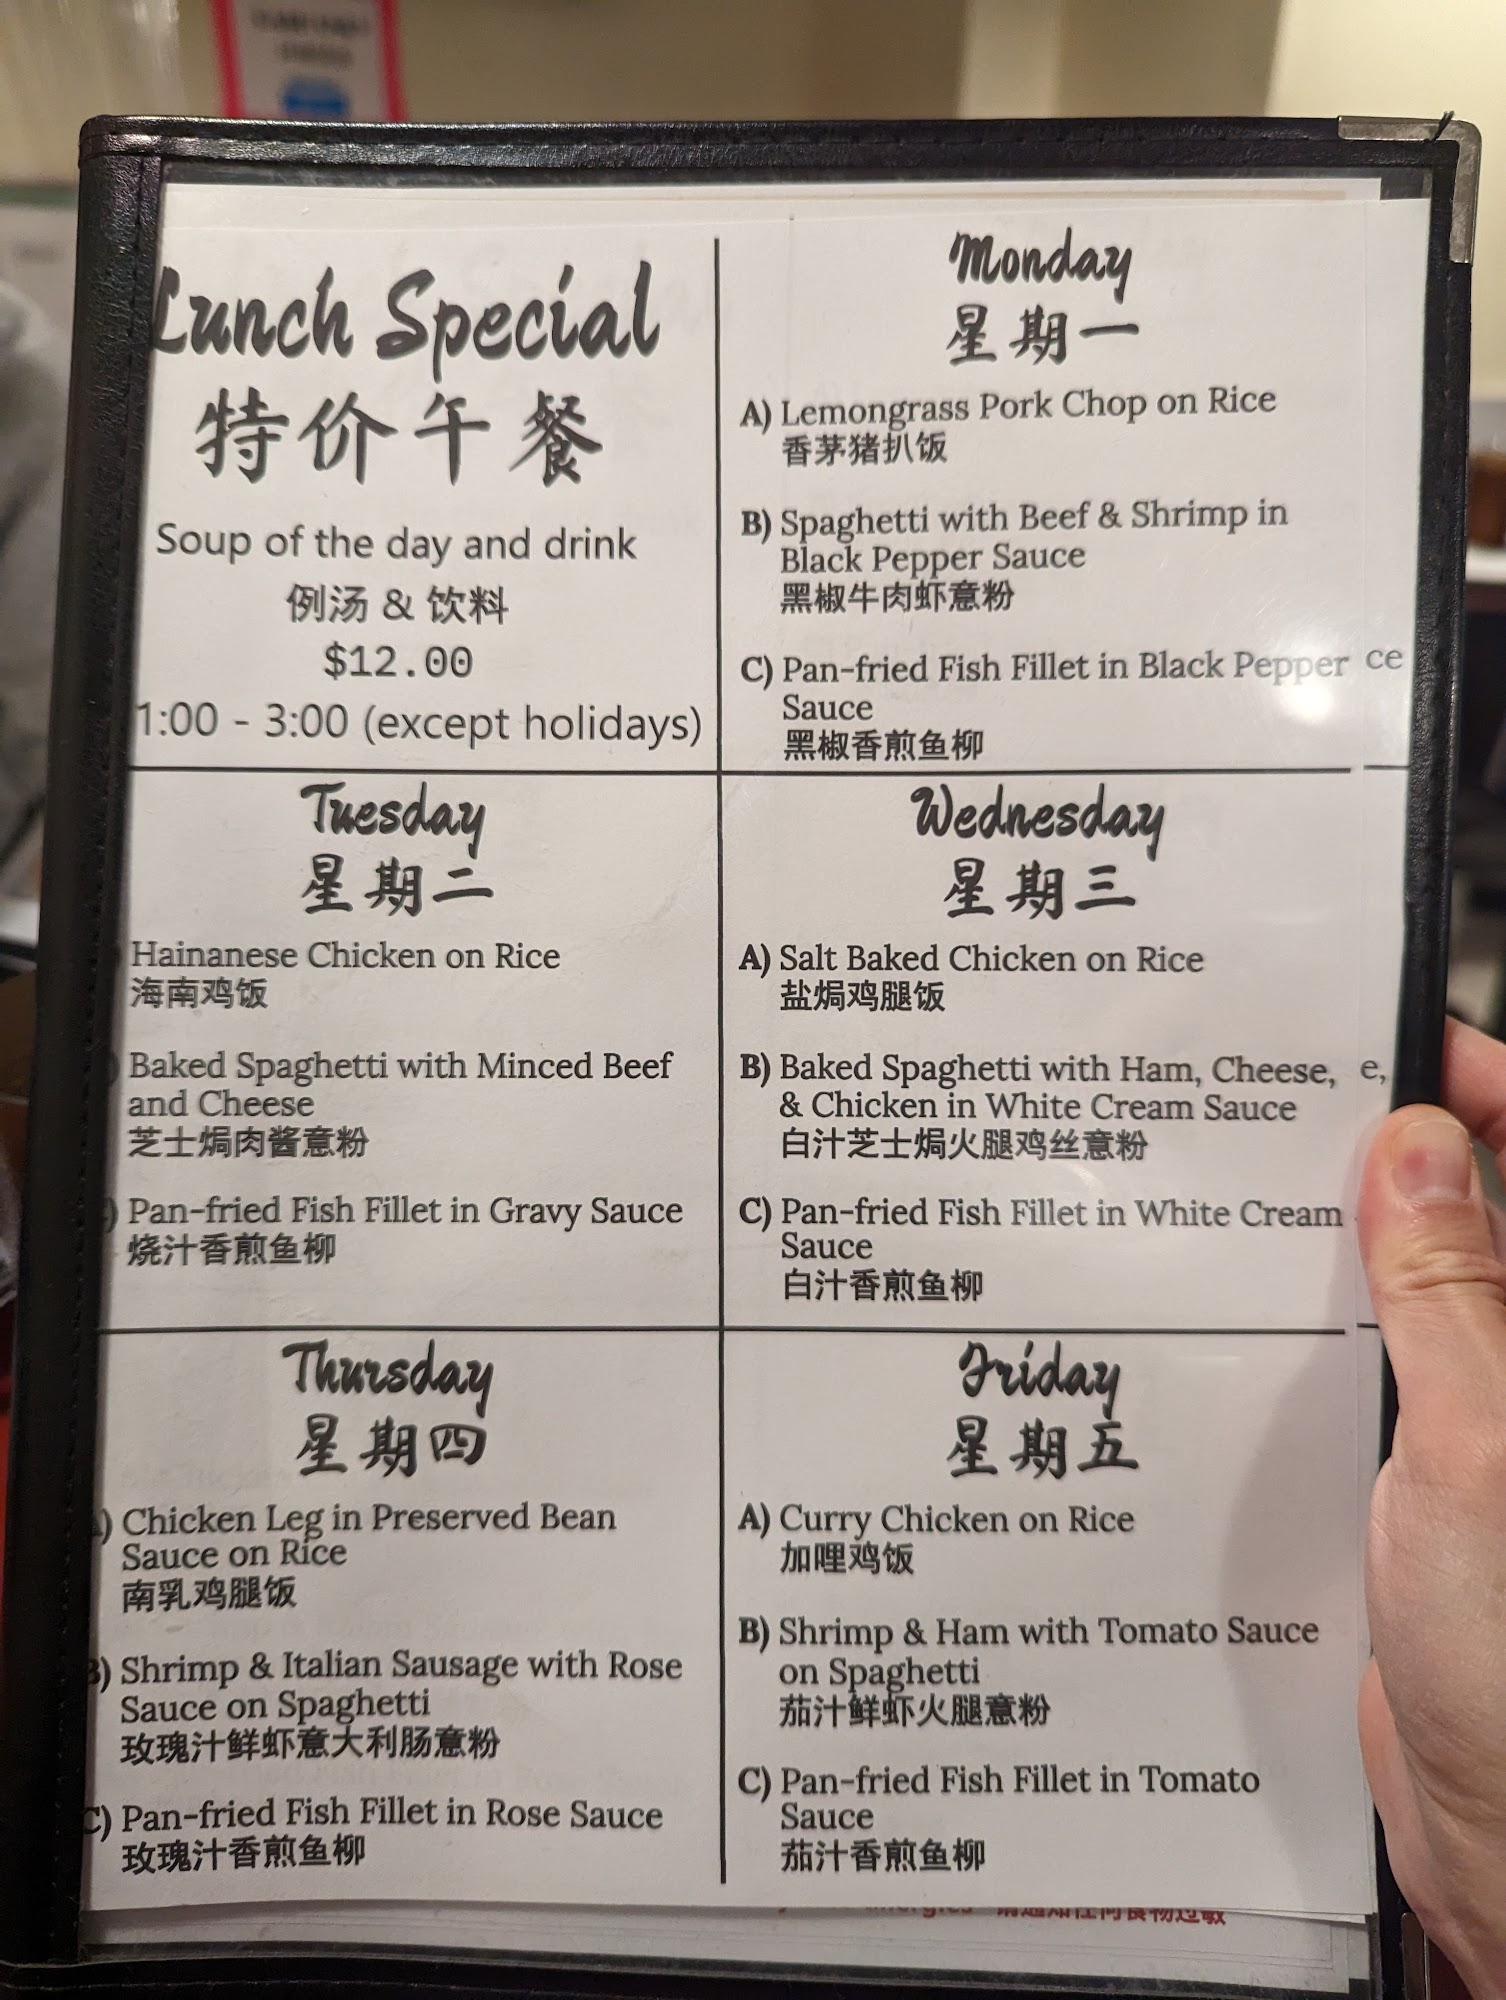 Lunch Special
特价午餐
Soup of the day and drink
例汤 & 饮料
$12.00
1:00 - 3:00 (except holidays)
Monday
星期一
A) Lemongrass Pork Chop on Rice
香茅猪扒饭
B) Spaghetti with Beef & Shrimp in
Black Pepper Sauce
黑椒牛肉虾意粉
C) Pan-fried Fish Fillet in Black Pepper ce
Sauce
黑椒香煎鱼柳
Tuesday
星期二
Hainanese Chicken on Rice
海南鸡饭
Baked Spaghetti with Minced Beef
and Cheese
芝士焗肉酱意粉
) Pan-fried Fish Fillet in Gravy Sauce
烧汁香煎鱼柳
Wednesday
星期三
A) Salt Baked Chicken on Rice
盐焗鸡腿饭
B) Baked Spaghetti with Ham, Cheese, e,
& Chicken in White Cream Sauce
白汁芝士焗火腿鸡丝意粉
C) Pan-fried Fish Fillet in White Cream
Sauce
白汁香煎鱼柳
Thursday
星期四
) Chicken Leg in Preserved Bean
Sauce on Rice
南乳鸡腿饭
B) Shrimp & Italian Sausage with Rose
Sauce on Spaghetti
玫瑰汁鲜虾意大利肠意粉
C) Pan-fried Fish Fillet in Rose Sauce
玫瑰汁香煎鱼柳
Friday
星期五
A) Curry Chicken on Rice
加哩鸡饭
B) Shrimp & Ham with Tomato Sauce
on Spaghetti
茄汁鲜虾火腿意粉
C) Pan-fried Fish Fillet in Tomato
Sauce
茄汁香煎鱼柳
请通知任何食物过敏